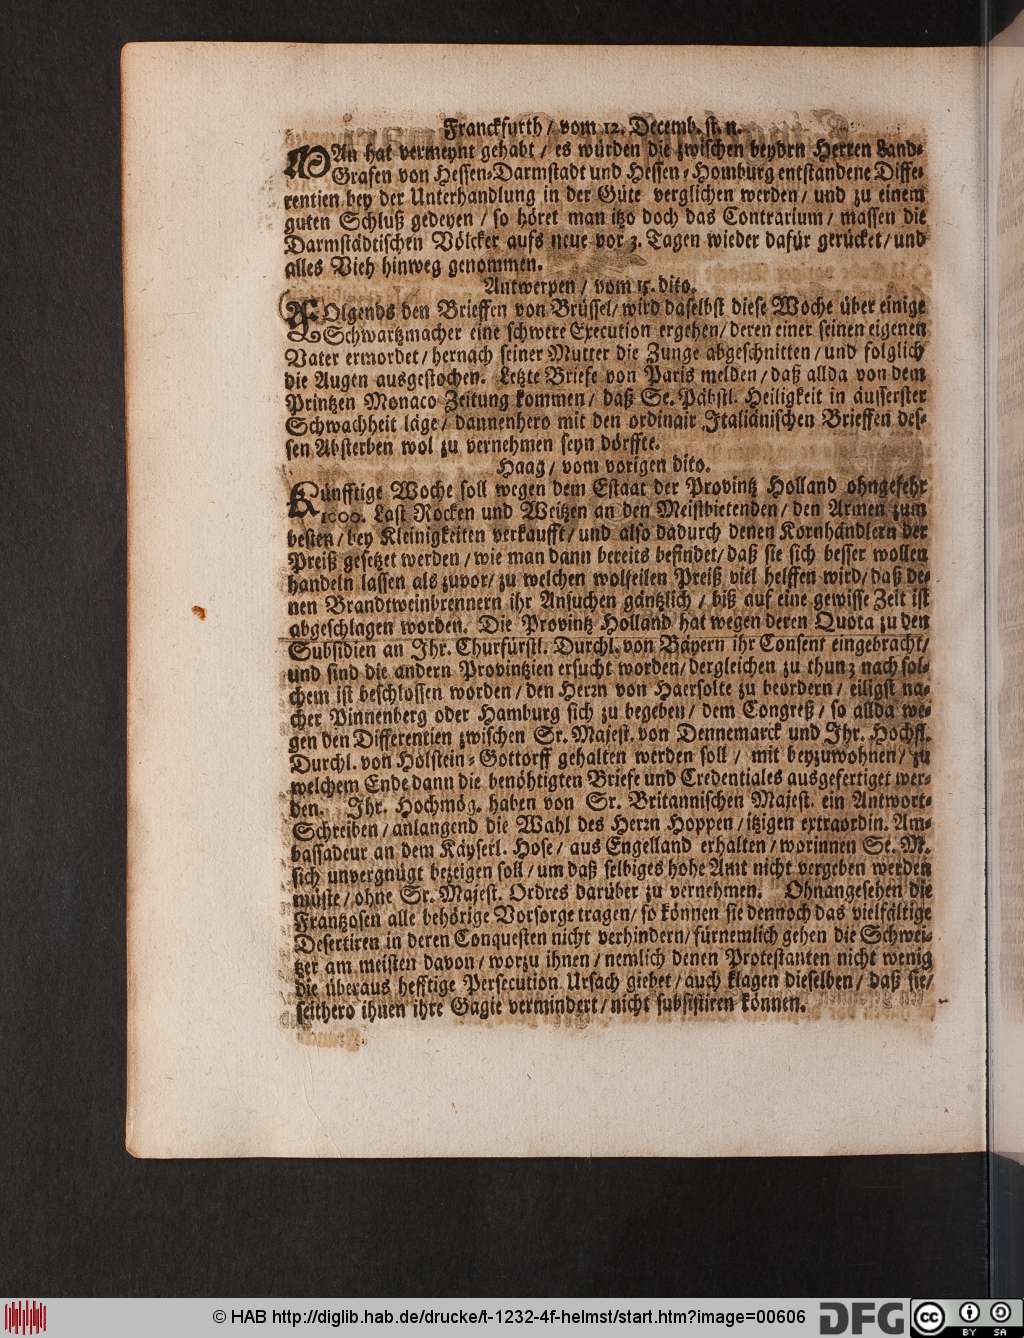 Franckfurth / vom 12. Decemb. st. n.
MAn hat vermeynt gehabt / es würden die zwischen beyden Herren Land-
Grafen von Hessen-Darmstadt und Hessen-Homburg entstandene Diffe-
rentien bey der Unterhandlung in der Güte verglichen werden / und zu einem
guten Schluß gedeyen / so höret man itzo doch das Contrarium / massen die
Darmstädtischen Völcker aufs neue vor 3. Tagen wieder dafür gerücket / und
alles Vieh hinweg genommen.
Antwerpen / vom 15. dito.
FOlgends den Brieffen von Brüssel / wird daselbst diese Woche über einige
Schwartzmacher eine schwere Execution ergehen / deren einer seinen eigenen
Vater ermordet / hernach seiner Mutter die Zunge abgeschnitten / und folglich
die Augen ausgestochen. Letzte Briefe von Paris melden / daß allda von dem
Printzen Monaco Zeitung kommen / daß Se. Päbstl. Heiligkeit in äusserster
Schwachheit läge / dannenhero mit den ordinair Italiänischen Brieffen des-
sen Absterben wol zu vernehmen seyn dörffte.
Haag / vom vorigen dito.
Künfftige Woche soll wegen dem Estaat der Provintz Holland ohngefehr
1000. Last Rocken und Weitzen an den Meistbietenden / den Armen zum
besten / bey Kleinigkeiten verkaufft / und also dadurch denen Kornhändlern der
Preiß gesetzet werden / wie man dann bereits befindet / daß sie sich besser wollen
handeln lassen als zuvor / zu welchen wolfeilen Preiß viel helffen wird / daß de-
nen Brandtweinbrennern ihr Ansuchen gäntzlich / biß auf eine gewisse Zeit ist
abgeschlagen worden. Die Provintz Holland hat wegen deren Quota zu den
Subsidien an Ihr. Churfürstl. Durchl. von Bäyern ihr Consent eingebracht /
und sind die andern Provintzien ersucht worden / dergleichen zu thun; nach sol-
chem ist beschlossen worden / den Herrn von Haersolte zu beordern / eiligst na-
cher Pinnenberg oder Hamburg sich zu begeben / dem Congreß / so allda we-
gen den Differentien zwischen Sr. Majest. von Dennemarck und Ihr. Hochfl.
Durchl. von Holstein-Gottorff gehalten werden soll / mit beyzuwohnen / zu
welchem Ende dann die benöhtigten Briefe und Credentiales ausgefertiget wer-
den. Ihr. Hochmög. haben von Sr. Britannischen Majest. ein Antwort-
Schreiben / anlangend die Wahl des Herrn Hoppen / itzigen extraordin. Am-
bassadeur an dem Käyserl. Hofe / aus Engelland erhalten / worinnen Se. M.
sich unvergnügt bezeigen soll / um daß selbiges hohe Amt nicht vergeben werden
müste / ohne Sr. Majest. Ordres darüber zu vernehmen. Ohnangesehen die
Frantzosen alle behörige Vorsorge tragen / so können sie dennoch das vielfältige
Desertiren in deren Conquesten nicht verhindern / fürnemlich gehen die Schwei-
tzer am meisten davon / worzu ihnen / nemlich denen Protestanten nicht wenig
die überaus hefftige Persecution Ursach giebet / auch klagen dieselben / daß sie /
seithero ihnen ihre Gagie vermindert / nicht subsistiren können.
© HAB http://diglib.hab.de/drucke/t-1232-4f-helmst/start.htm?image=00606
DFG
cc BY SA